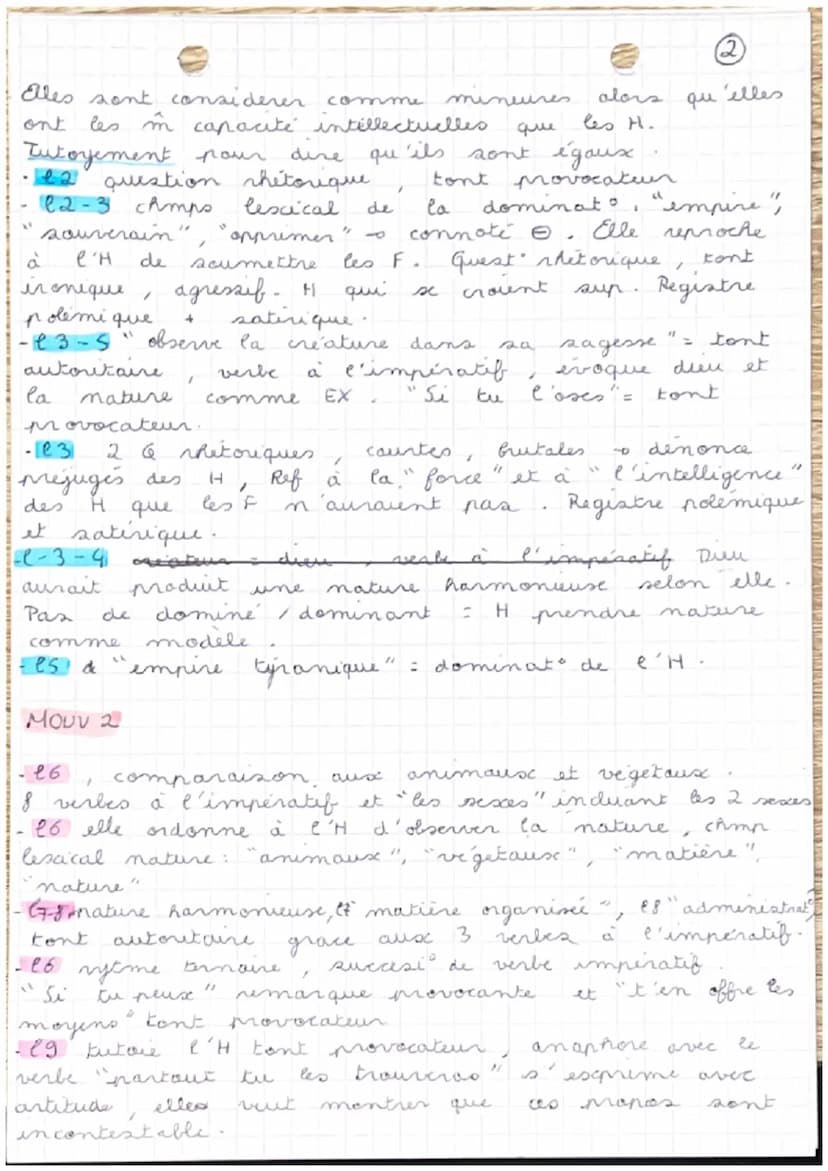 2
Elles sont considerer comme mineures alors qu'elles
ont les m̂ capacité intellectuelles que les H.
Tutoyement pour dire qu'ils sont égaux.
- l2 question rhétorique, tont provocateur
- l2-3 chmps lescical de la dominat°. "empire",
"souverain", "opprimer" → connoté ⊖. Elle reproche
à l'H de soumettre les F. Quest° rhétorique, tont
ironique, agressif. H qui se croient sup. Registre
polémique + satirique.
- l3-5 "observe la créature dans sa sagesse" = tont
autoritaire, verbe à l'impératif, évoque dieu et
la nature comme EX. "Si tu l'oses" = tont
provocateur.
- l3 2 Q rhétoriques, courtes, brutales → dénonce
préjugés des H, Ref à la "force" et à "l'intelligence"
des H que les F n'auraient pas. Registre polémique
et satirique.
- l-3-4 créateur = dieu, verbe à l'impératif Dieu
aurait produit une nature harmonieuse selon elle.
Pas de dominé / dominant = H prendre nature
comme modèle.
- l5 "empire tyranique" = dominat° de l'H.
MOUV 2
- l6, comparaison aux animaux et végétaux.
8 verbes à l'impératif et "les sexes" incluant les 2 sexes
- l6 elle ordonne à l'H d'observer la nature, chmp
lescical nature: "animaux", "végétaux", "matière",
"nature"
- l7-8 nature harmonieuse, l7 matière organisée", l8 "administrat°"
tont autoritaire grace aux 3 verbes à l'impératif.
- l6 rytme ternaire, successi° de verbe impératif
"Si tu peux" remarque provocante et "t'en offre les
moyens" tont provocateur
- l9 tutoie l'H tont provocateur, anaphore avec le
verbe "partout tu les trouveras" s'exprime avec
artitude, elles veut montrer que ces propos sont
incontestable.